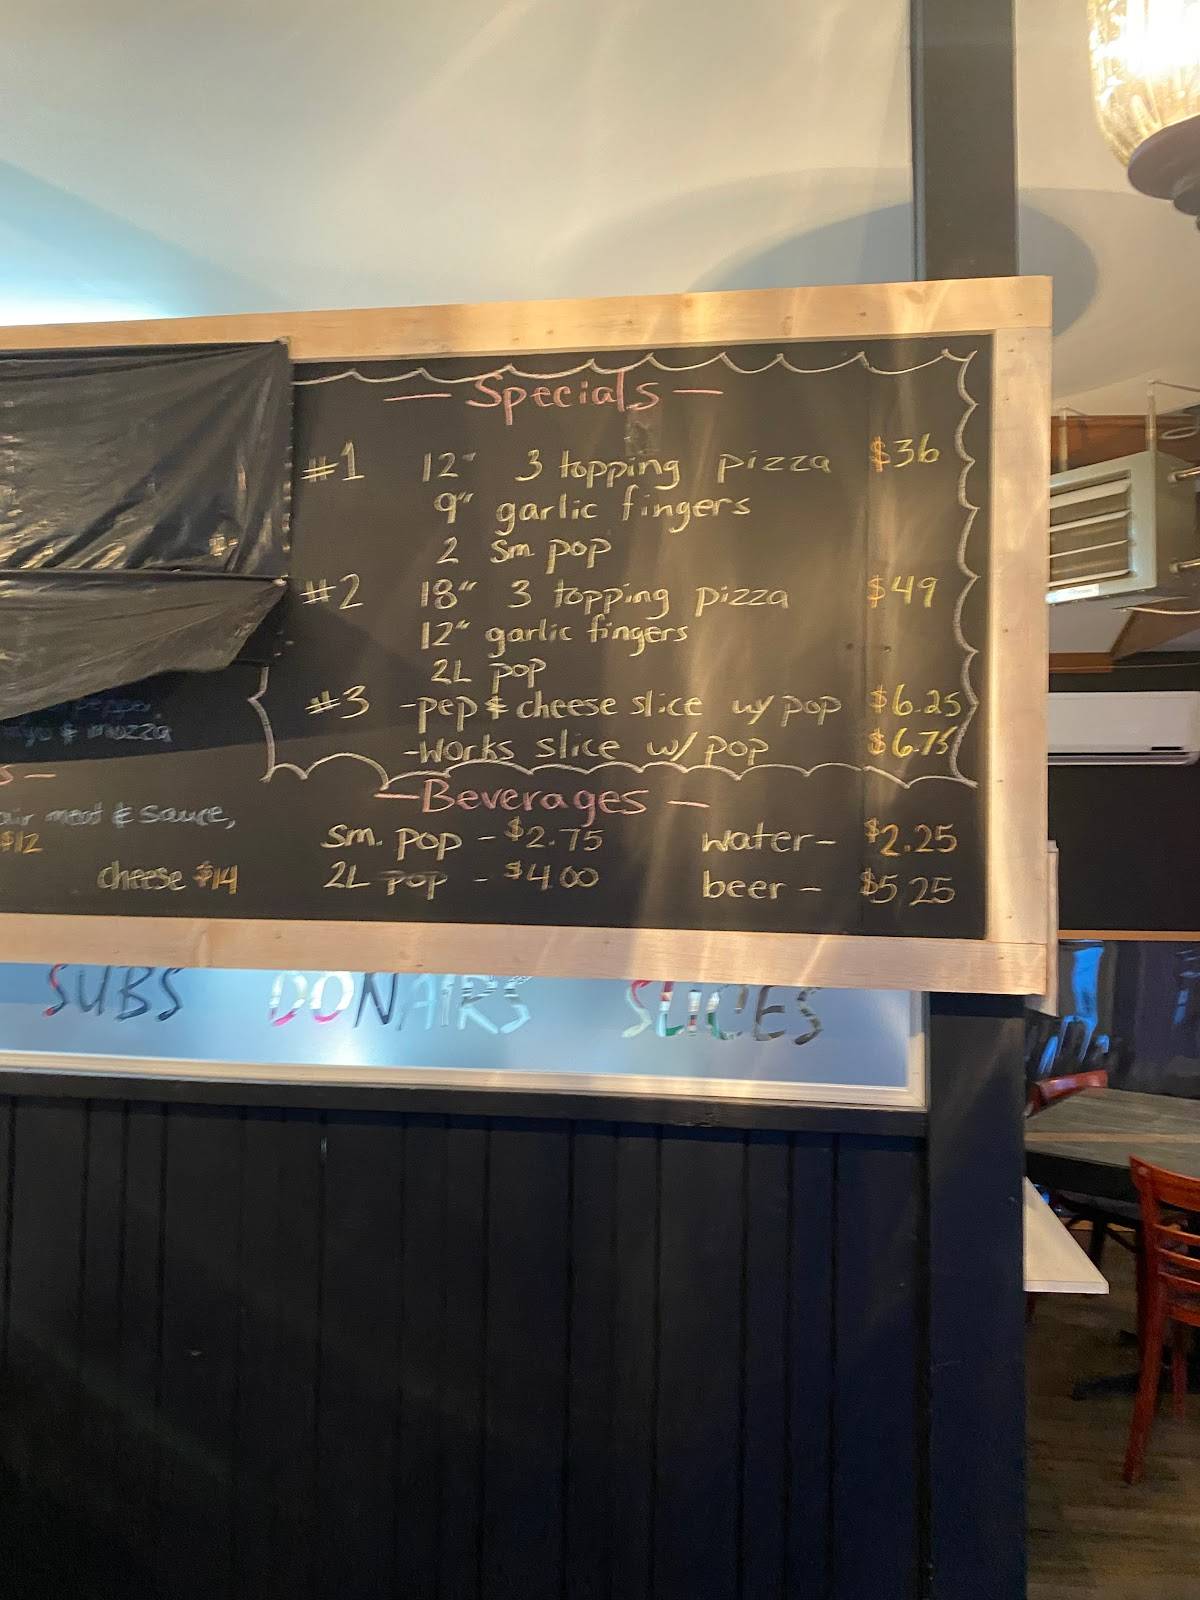 — Specials —
#1 12" 3 topping pizza $36
9" garlic fingers
2 sm pop
#2 18" 3 topping pizza $49
12" garlic fingers
2L pop
#3 -pep & cheese slice w/ pop $6.25
-works slice w/ pop $6.75
— Beverages —
sm. pop - $2.75 water- $2.25
2L pop - $4.00 beer - $5.25
pepper,
& mozza
s —
air meat & sauce,
$12
cheese $14
SUBS DONAIRS SLICES